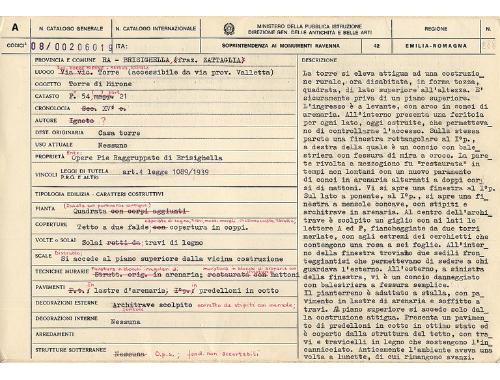 A
N. CATALOGO GENERALE
N. CATALOGO INTERNAZIONALE
MINISTERO DELLA PUBBLICA ISTRUZIONE
DIREZIONE GEN. DELLE ANTICHITÀ E BELLE ARTI
REGIONE
N.
CODICI
08/00206019
ITA:
SOPRINTENDENZA AI MONUMENTI RAVENNA
42
EMILIA-ROMAGNA
PROVINCIA E COMUNE RA - BRISIGHELLA (fraz. ZATTAGLIA)
LUOGO Via vic. Torre (accessibile da via prov. Valletta)
OGGETTO Torre di Mirone
CATASTO F. 54, mapp. 21
CRONOLOGIA Sec. XV°
AUTORE Ignoto ?
DEST. ORIGINARIA Casa torre
USO ATTUALE Nessuno
PROPRIETÀ Opere Pie Raggruppate di Brisighella
VINCOLI LEGGI DI TUTELA art.4 legge 1089/1939
P.R.G. E ALTRI
TIPOLOGIA EDILIZIA - CARATTERI COSTRUTTIVI
PIANTA Quadrata con corpi aggiunti
COPERTURE Tetto a due falde con copertura in coppi.
VOLTE o SOLAI Solai retti da travi di legno
SCALE Si accede al piano superiore dalla vicina costruzione
TECNICHE MURARIE Strutt. orig. in arenaria; restaurata con mattoni
PAVIMENTI P.t. lastre d'arenaria, I°p. in predelloni in cotto
DECORAZIONI ESTERNE Architrave scolpito
DECORAZIONI INTERNE Nessuna
ARREDAMENTI
STRUTTURE SOTTERRANEE Nessuna
DESCRIZIONE
La torre si eleva attigua ad una costruzio
ne rurale, ora disabitata, in forma tozza,
quadrata, di lato superiore all'altezza. E'
sicuramente priva di un piano superiore.
L'ingresso è a levante, con arco in conci di
arenaria. All'interno presenta una feritoia
per ogni lato, oggi ostruite, che permetteva
no di controllarne l'accesso. Sulla stessa
parete una finestra rettangolare al I°p.,
a destra della quale è un concio con bale-
striera con fessura di mira a croce. La pare
te rivolta a mezzogiorno fu "restaurata" in
tempi non lontani con un nuovo paramento
di conci in arenaria alternati a doppi cor
si di mattoni. Vi si apre una finestra al I°p.
Sul lato a ponente, al I°p., si apre una fi
nestra a mensole concave, con stipiti e
architrave in arenaria. Al centro dell'archi
trave è scolpito un giglio con ai lati le
lettere A ed F, fiancheggiato da due torri
merlate, con agli estremi dei cerchietti che
contengono una rosa a sei foglie. All'inter
no della finestra troviamo due sedili fron
teggiantisi che permettevano di sedere a chi
guardava l'esterno. All'esterno, a sinistra
della finestra, vi è un concio danneggiato
con balestriera a fessura semplice.
Il pianterreno è adattato a stalla, con pa
vimento in lastre di arenaria e soffitto a
travi. Al piano superiore si accede solo dal
la costruzione attigua. Presenta un pavimen
to di predelloni in cotto in ottimo stato ed
è coperto dalla struttura del tetto, con tra
vi e travicelli in legno che sostengono l'in
cannicciato. Anticamente l'ambiente aveva una
volta a lunette, di cui rimangono avanzi.